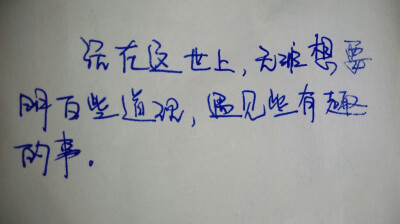 活在这世上,无非想要
明百些道理,遇见些有趣
的事.